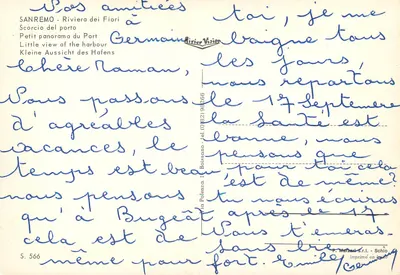 Nos amitiées
à Germaine
SANREMO - Riviera dei Fiori
Scorcio del porto
Petit panorama du Port
Little view of the harbour
Kleine Aussicht des Hafens
Chère Maman,
Nous passons
d'agréables
vacances, le
temps est beau,
nous pensons
qu'à Bugeât
cela est de
même pour
toi, je me
baigne tous
les jours,
nous repartons
le 17 Septembre
la santé est
bonne, nous
pensons que
pour toi cela
est de même?
tu nous écriras
après le 17
Vous t'embras
sons bien
fort. Emile Germaine
S. 566